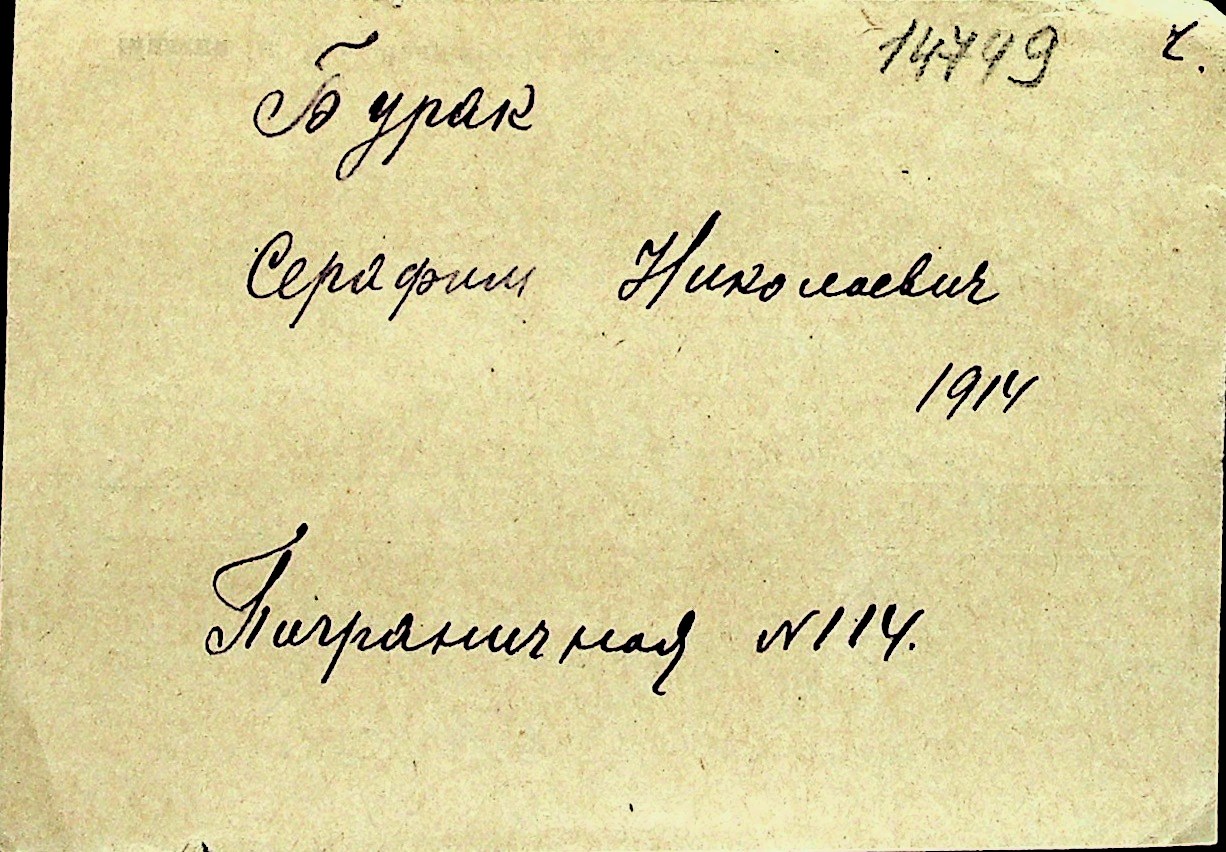 14749 ч.
Бурак
Серафим Николаевич
1914
Пограничная №114.